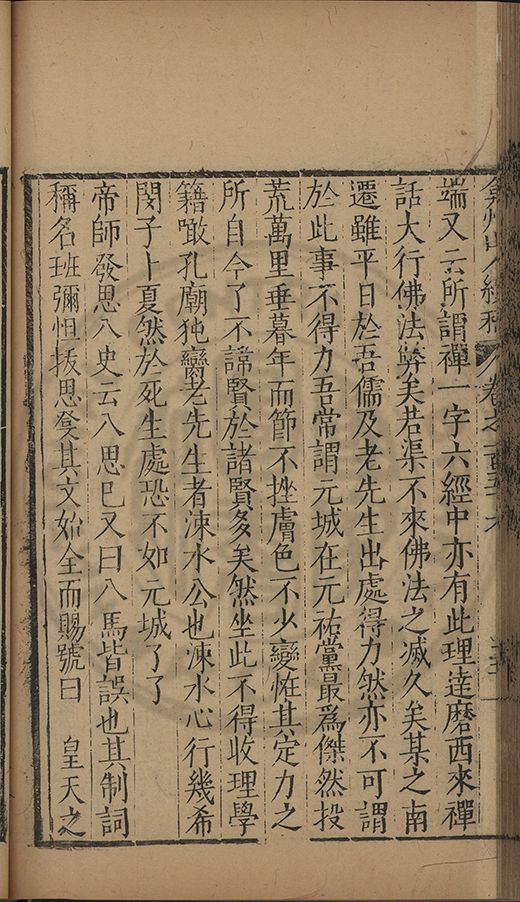 弇州山人續稿 卷之一百五十六
端又云所謂禪一字六經中亦有此理達磨西來禪
話大行佛法弊矣若渠不來佛法之滅久矣某之南
遷雖平日於吾儒及老先生出處得力然亦不可謂
於此事不得力吾常謂元城在元祐黨最爲傑然投
荒萬里垂暮年而節不挫膚色不少變恠其定力之
所自今了不諦賢於諸賢多矣然坐此不得收理學
籍啖孔廟㹠臠老先生者涑水公也涑水心行幾希
閔子卜夏然於死生處恐不如元城了了
帝師發思八史云八思巴又曰八馬皆誤也其制詞
稱名班彌怛拔思發其文始全而賜號曰 皇天之